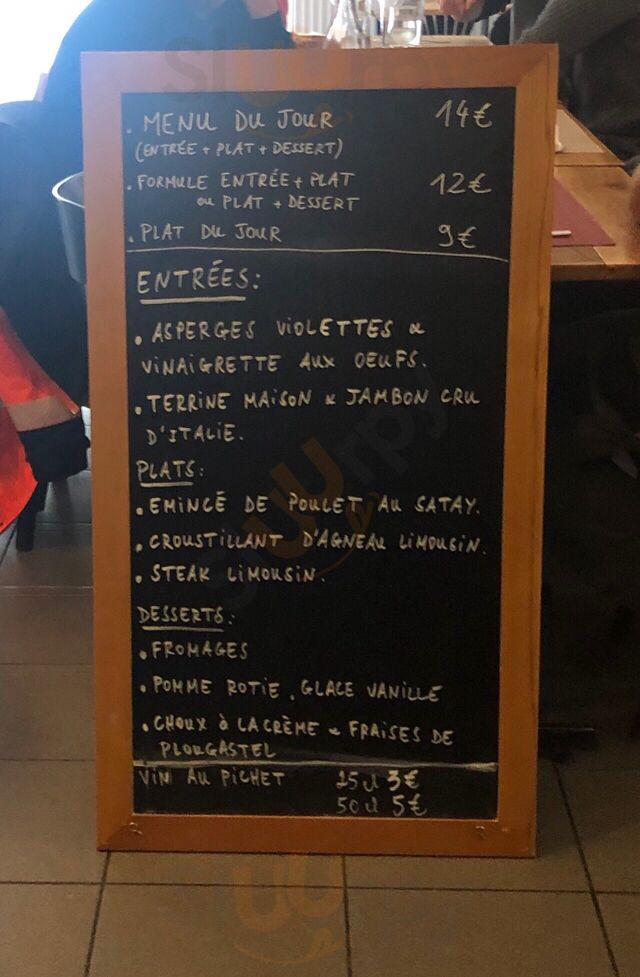 . MENU DU JOUR 14€
(ENTRÉE + PLAT + DESSERT)
. FORMULE ENTRÉE + PLAT 12€
ou PLAT + DESSERT
. PLAT DU JOUR 9€
ENTRÉES:
. ASPERGES VIOLETTES &
VINAIGRETTE AUX OEUFS.
. TERRINE MAISON & JAMBON CRU
D'ITALIE.
PLATS:
. EMINCÉ DE POULET AU SATAY.
. CROUSTILLANT D'AGNEAU LIMOUSIN.
. STEAK LIMOUSIN.
DESSERTS:
. FROMAGES
. POMME ROTIE, GLACE VANILLE
. CHOUX à LA CRÈME & FRAISES DE
PLOUGASTEL
VIN AU PICHET 25 cl 3€
50 cl 5€
sluurpy